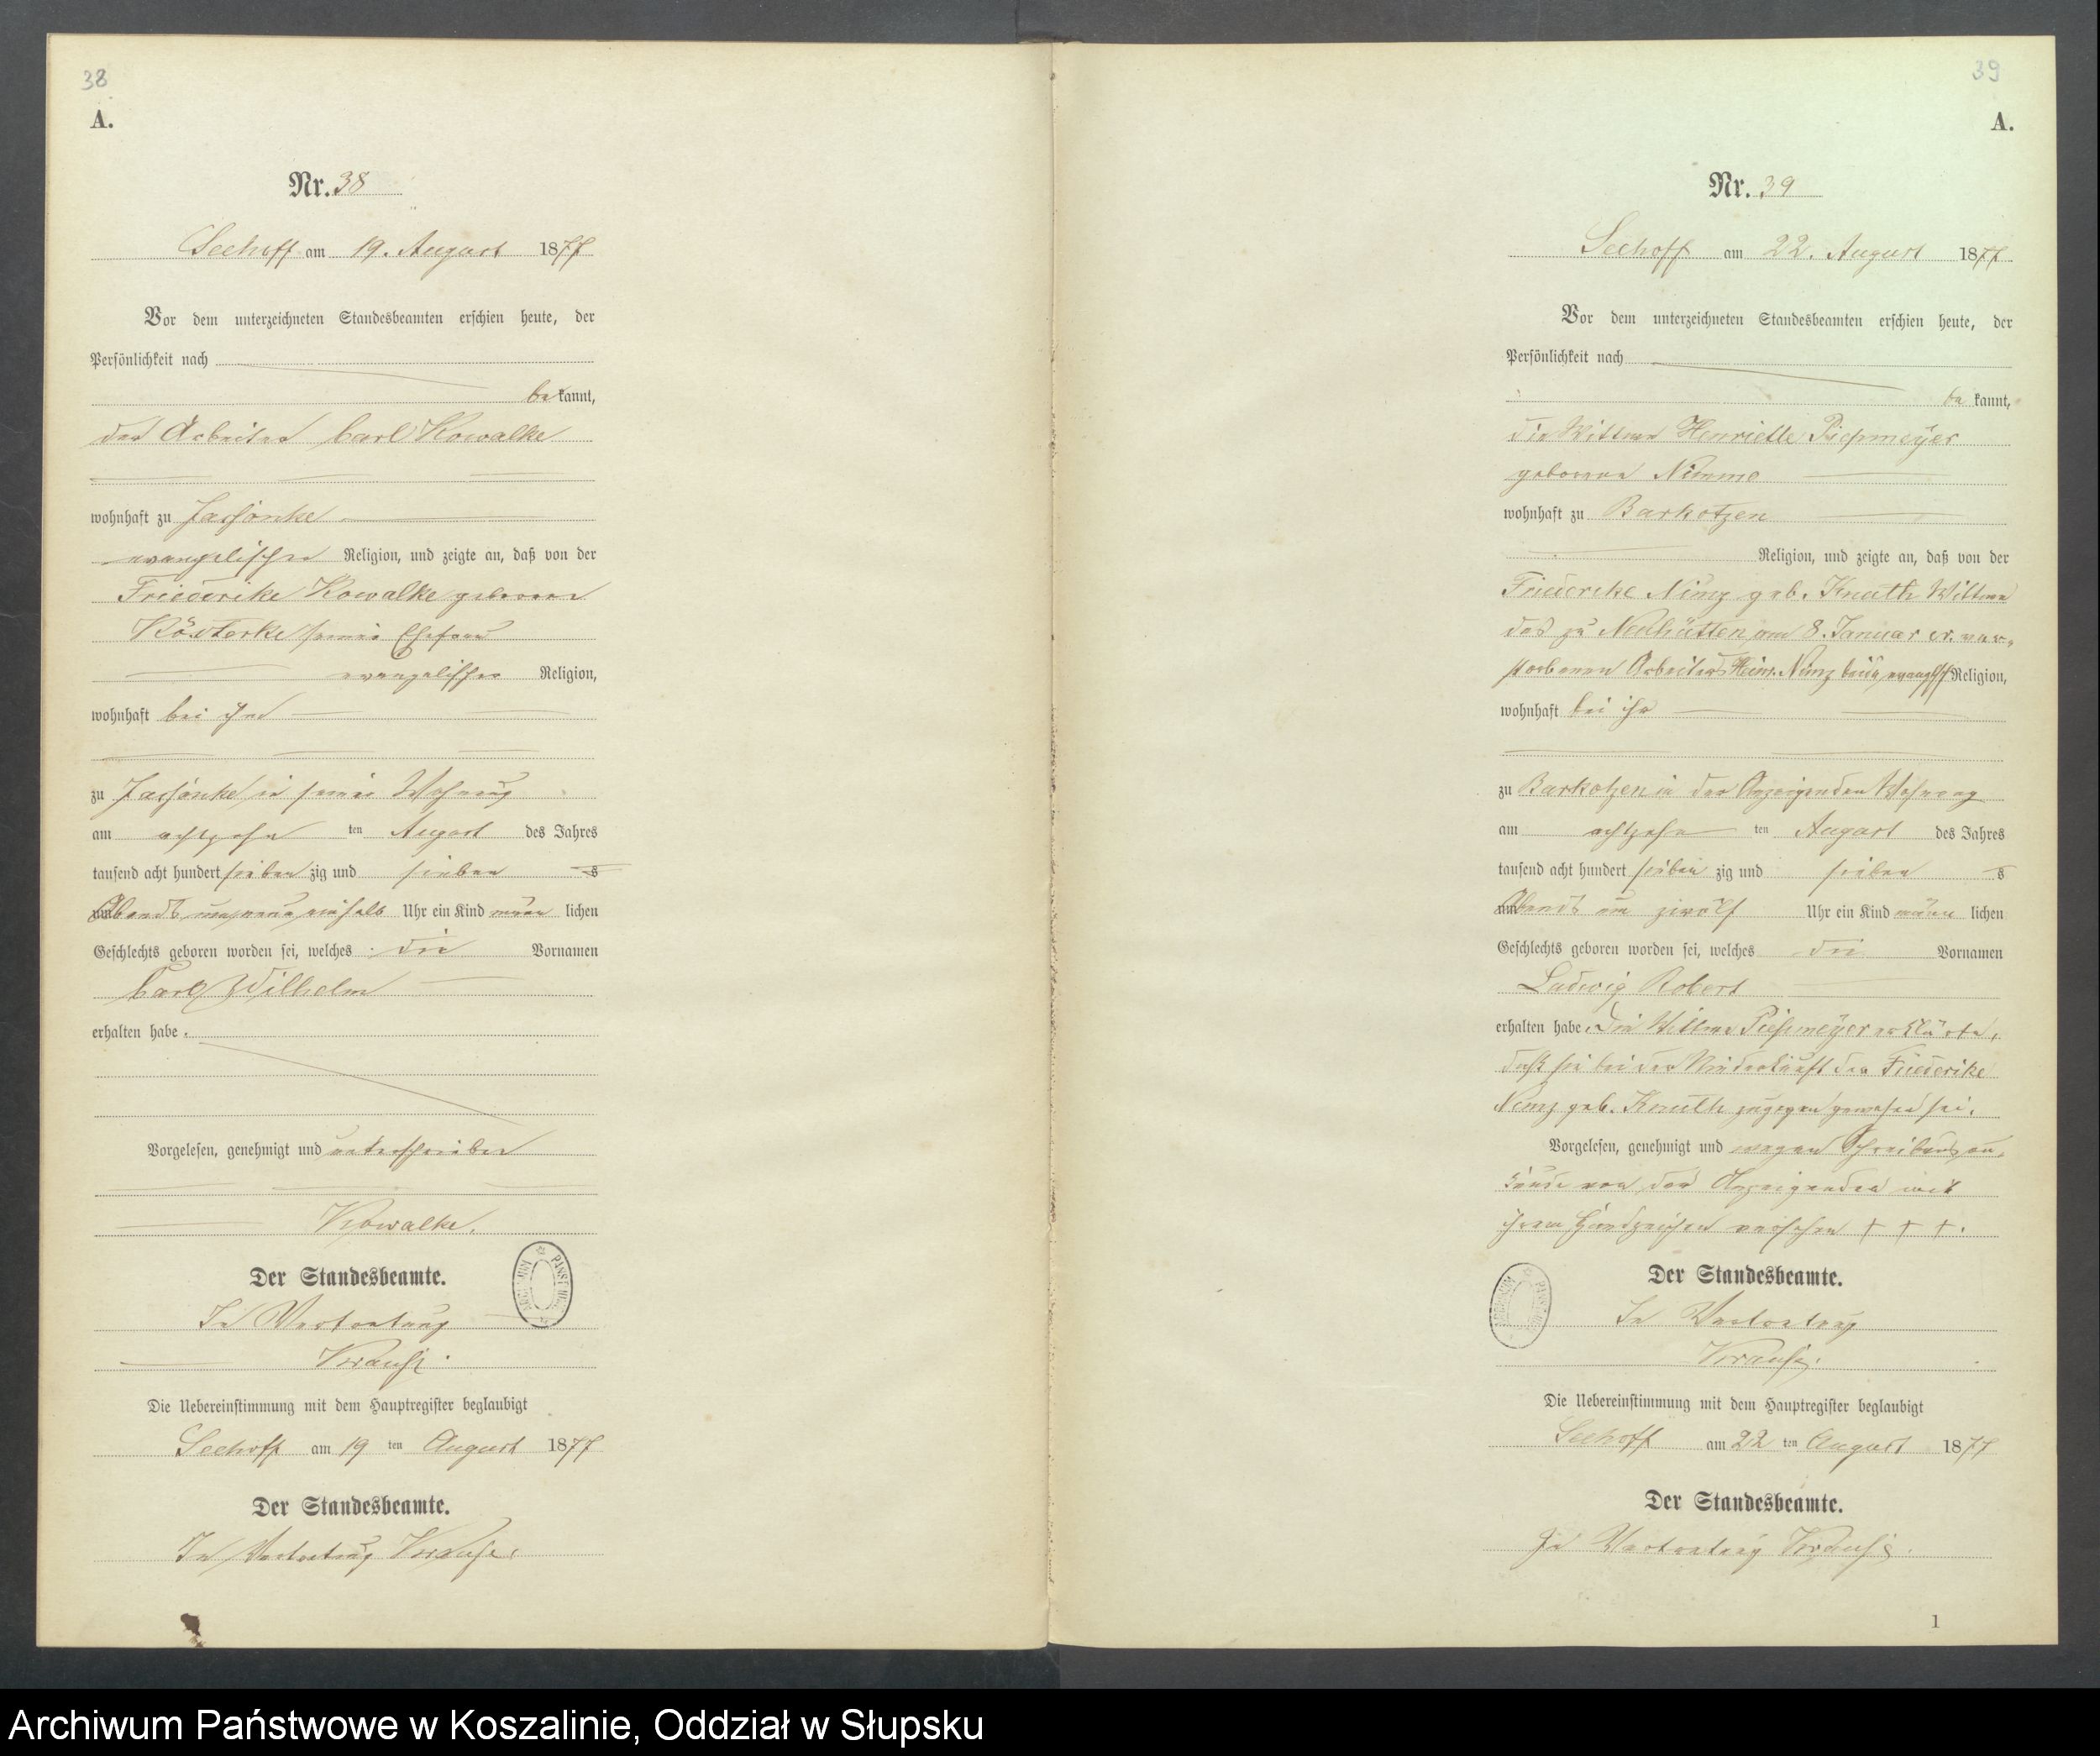 38
A.
Nr. 38
Seehoff am 19. August 1877
Vor dem unterzeichneten Standesbeamten erschien heute, der
Persönlichkeit nach
bekannt,
der Arbeiter Carl Kowalke
wohnhaft zu Jassonke
evangelischer Religion, und zeigte an, daß von der
Friederike Kowalke geborene
Kösterke seiner Ehefrau
evangelischer Religion,
wohnhaft bei ihm
zu Jassonke in seiner Wohnung
am achtzehn ten August des Jahres
tausend acht hundert sieben zig und sieben
Abends um Uhr ein Kind männ lichen
Geschlechts geboren worden sei, welches die Vornamen
Carl Wilhelm
erhalten habe.
Vorgelesen, genehmigt und unterschrieben
Kowalke.
Der Standesbeamte.
In Vertretung
Krause.
Die Uebereinstimmung mit dem Hauptregister beglaubigt
Seehoff am 19 ten August 1877
Der Standesbeamte.
In Vertretung Krause.
39
A.
Nr. 39
Seehoff am 22. August 1877
Vor dem unterzeichneten Standesbeamten erschien heute, der
Persönlichkeit nach
be kannt,
die Wittwe Henriette Piepmeyer
geborene Nimmo
wohnhaft zu Barkotzen
Religion, und zeigte an, daß von der
Friederike Nimz geb. Knuth Wittwe
des zu Neuhütten am 8. Januar cr. ver-
storbenen Arbeiters Heinr. Nimz beide evanglsch Religion,
wohnhaft bei ihr
zu Barkotzen in der Anzeigenden Wohnung
am achtzehn ten August des Jahres
tausend acht hundert sieben zig und sieben
Abends um zwölf Uhr ein Kind männ lichen
Geschlechts geboren worden sei, welches die Vornamen
Ludwig Robert
erhalten habe. Die Wittwe Piepmeyer erklärte,
daß sie bei der Niederkunft der Friederike
Nimz geb. Knuth zugegen gewesen sei.
Vorgelesen, genehmigt und wegen Schreibensun-
kunde von der Anzeigenden mit
ihrem Handzeichen versehen + + +.
Der Standesbeamte.
In Vertretung
Krause.
Die Uebereinstimmung mit dem Hauptregister beglaubigt
Seehoff am 22 ten August 1877
Der Standesbeamte.
In Vertretung Krause.
1
Archiwum Państwowe w Koszalinie, Oddział w Słupsku